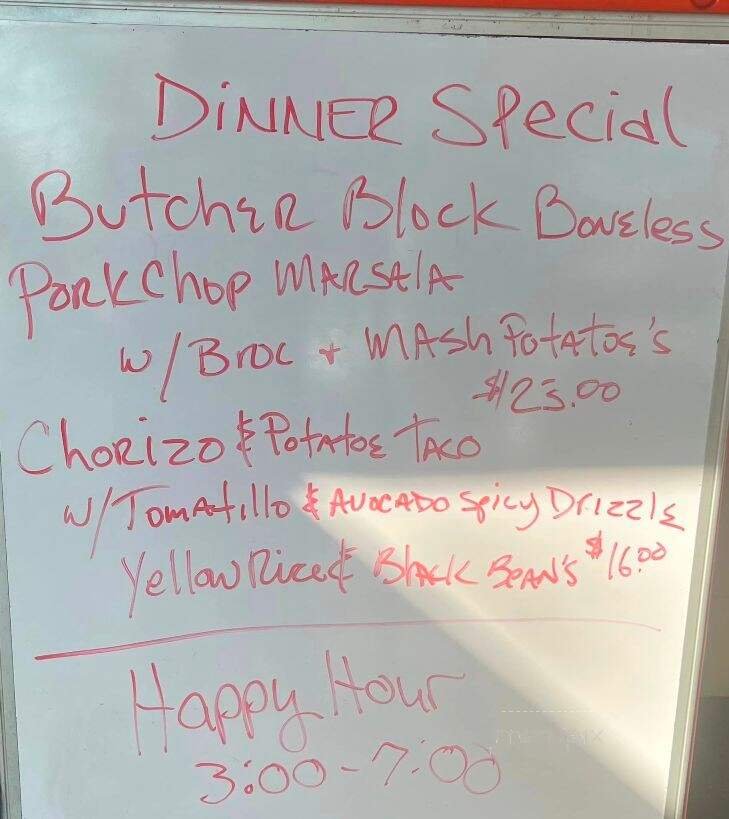 DiNNER Special
Butcher Block Boneless
Pork Chop MARSAlA
w/Broc + MAsh PotAtoe's
$23.00
Chorizo & PotAtoe TACO
w/Tomatillo & AVOCADO Spicy Drizzle
Yellow Rice & Black BEAN'S $16.00
Happy Hour
3:00-7:00